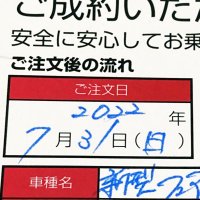 ご成約いただ
安全に安心してお乗
ご注文後の流れ
ご注文日
2022年
7月31日(日)
車種名 新型